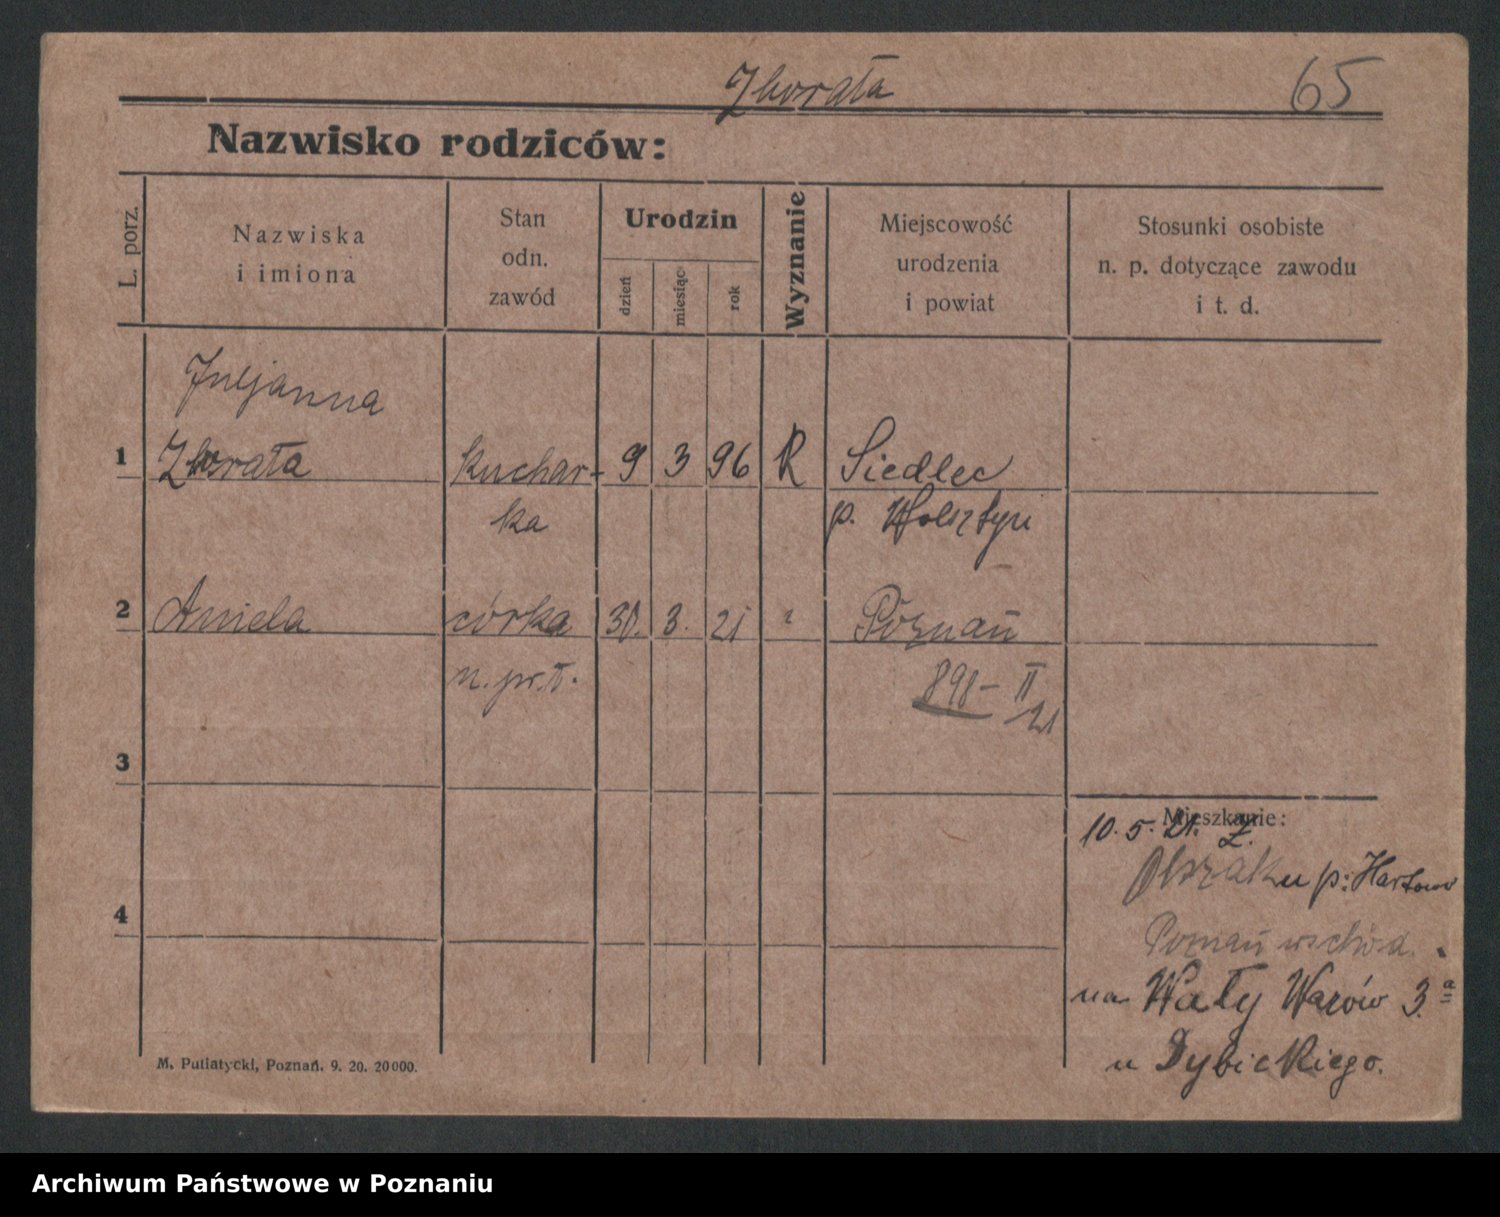 Zborała 65
Nazwisko rodziców:
L. porz.
Nazwiska
i imiona
Stan
odn.
zawód
Urodzin
dzień
miesiąc
rok
Wyznanie
Miejscowość
urodzenia
i powiat
Stosunki osobiste
n. p. dotyczące zawodu
i t. d.
Juljanna
1 Zborała kuchar- 9 3 96 R Siedlec
ka p. Wolsztyn
2 Aniela córka 30. 3. 21 " Poznań
898 – II
21
3
Mieszkanie:
10. 5. 21. Z.
p. 
4
Poznań wschód.
na Wały Wazów 3.a
u Dybickiego.
M. Putiatycki, Poznań. 9. 20. 20000.
Archiwum Państwowe w Poznaniu